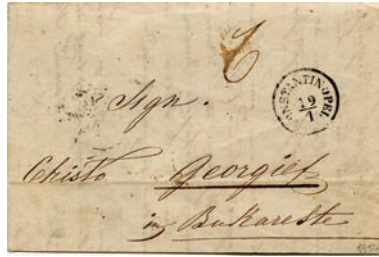 6
Sign.
CONSTANTINOPEL
19
1
Christo Georgief
in Bukareste